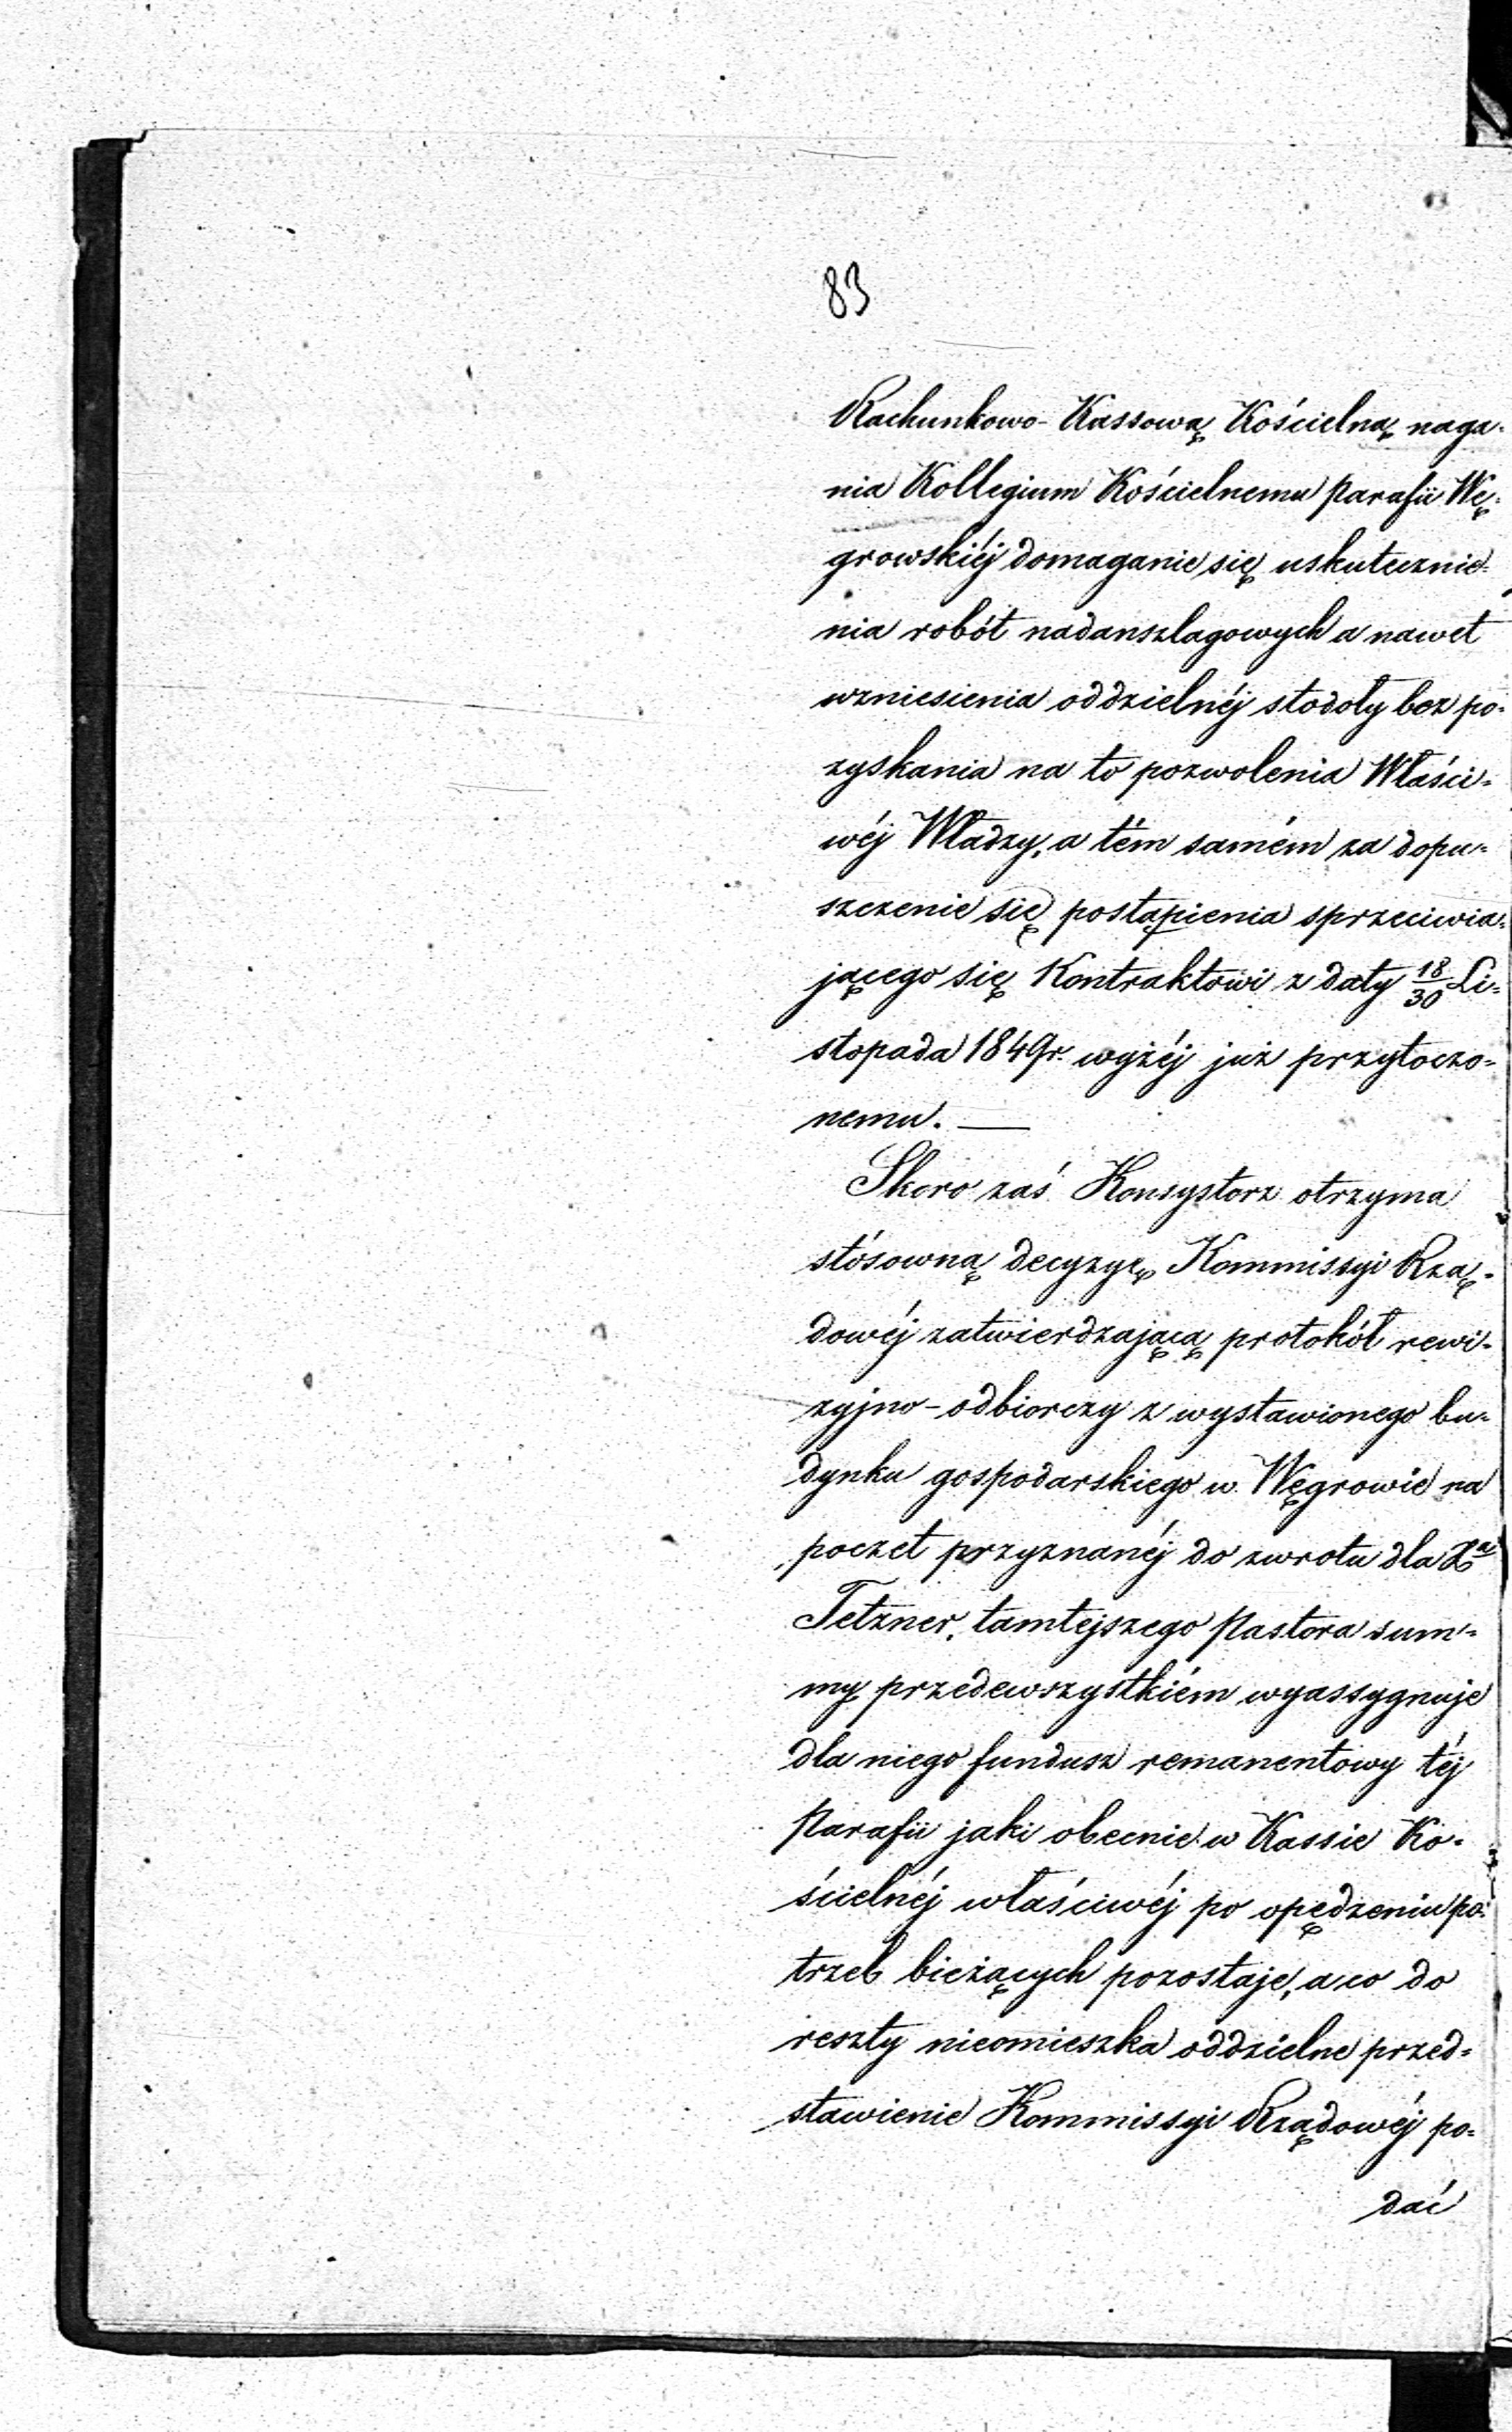 83
Rachunkowo-Kassową Kościelną naga-
nia Kollegium Kościelnemu Parafii Wę-
growskiéj domaganie się uskutecznie-
nia robót nadanszlagowych a nawet
wzniesienia oddzielnéj stodoły bez po-
zyskania na to pozwolenia Właści-
wéj Władzy, a tém samém za dopu-
szczenie się postąpienia sprzeciwia-
jącego się Kontraktowi z daty 18/30 Li-
stopada 1849r. wyżéj już przytoczo-
nemu. —
Skoro zaś Konsystorz otrzyma
stósowną decyzyę Kommissyi Rzą-
dowéj zatwierdzającą protokół rewi-
zyjno-odbiorczy z wystawionego bu-
dynku gospodarskiego w Węgrowie na
poczet przyznanéj do zwrotu dla Xa
Tetzner, tamtejszego Pastora sum-
my przedewszystkiém wyassygnuje
dla niego fundusz remanentowy téj
Parafii jaki obecnie w Kassie Ko-
ścielnéj właściwéj po opędzeniu po-
trzeb bieżących pozostaje, a co do
reszty nieomieszka oddzielne przed-
stawienie Kommissyi Rządowéj po-
dać